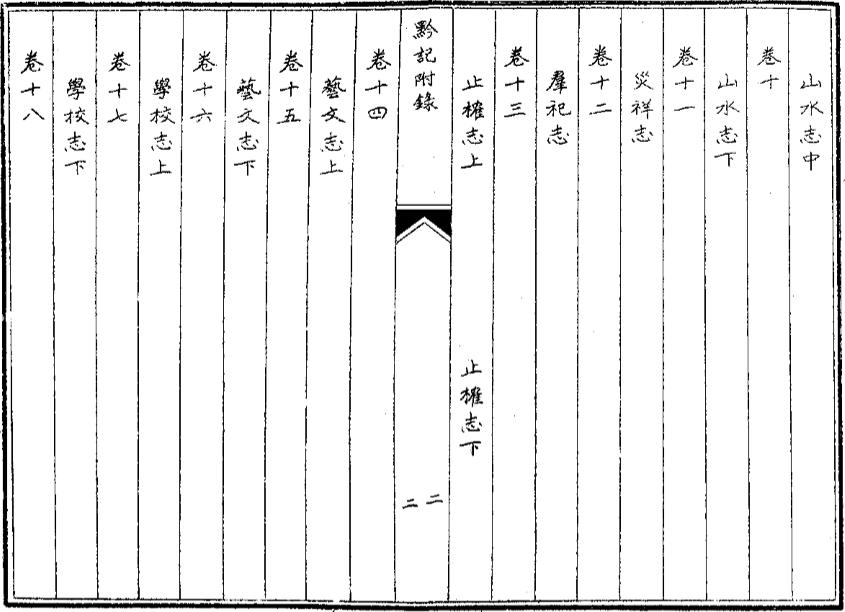 山水志中
卷十
山水志下
卷十一
災祥志
卷十二
羣祀志
卷十三
止榷志上
止榷志下
黔記附錄
二
二
卷十四
藝文志上
卷十五
藝文志下
卷十六
學校志上
卷十七
學校志下
卷十八